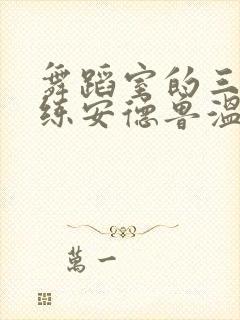 舞蹈室的三
练安德鲁温
萬一